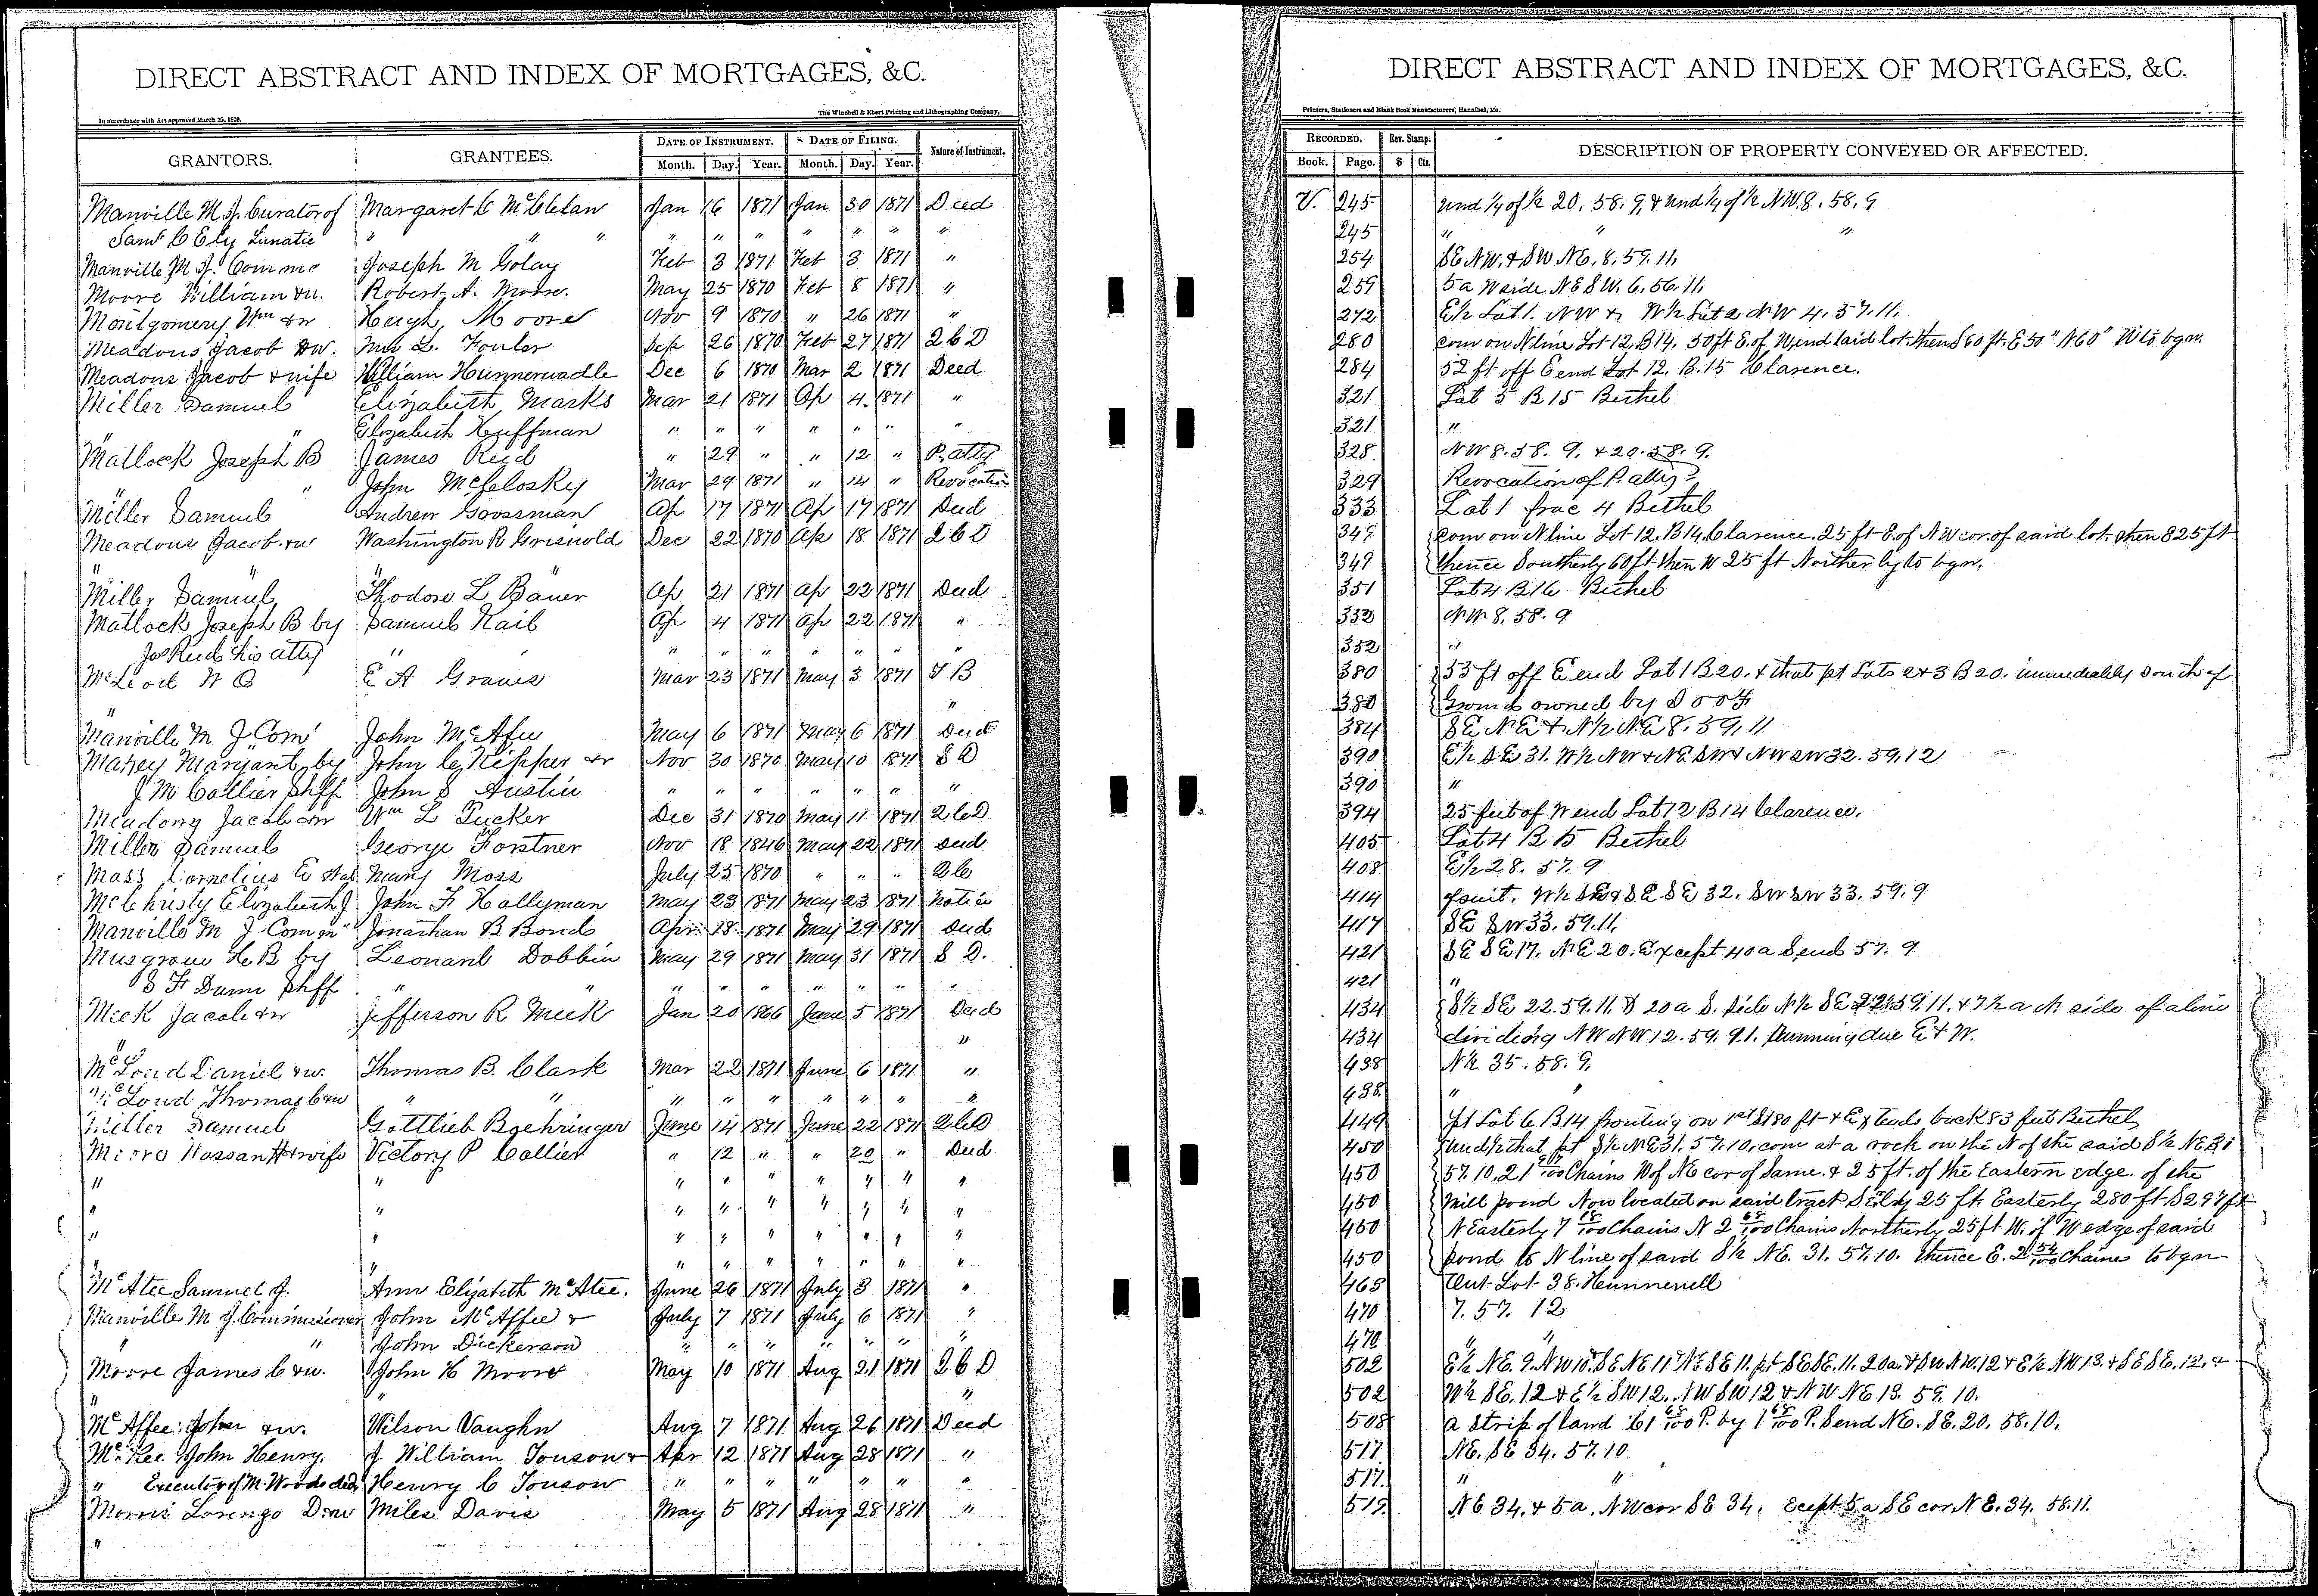 DIRECT ABSTRACT AND INDEX OF MORTGAGES, &C.
In accordance with Act approved March 25, 1870.
The Winchell & Ebert Printing and Lithographing Company,
GRANTORS. GRANTEES. DATE OF INSTRUMENT. DATE OF FILING. Nature of Instrument.
Month. Day. Year. Month. Day. Year.
Manville M J. Curator of Margaret C McClelan Jan 16 1871 Jan 30 1871 Deed
Saml C Ely Lunatic " " " " " " " " " "
Manville M J. Commr Joseph M Golay Feb 3 1871 Feb 3 1871 "
Moore William &w. Robert A. Moore. May 25 1870 Feb 8 1871 "
Montgomery Wm &w Hugh Moore Nov 9 1870 " 26 1871 "
Meadows Jacob &w. L. Fowler Sep 26 1870 Feb 27 1871 Q C D
Meadows Jacob & wife William Hunnerwadle Dec 6 1870 Mar 2 1871 Deed
Miller Samuel Elizabeth Marks Mar 21 1871 Ap 4 1871 "
" " Elizabeth Huffman " " " " " " "
Matlock Joseph B James Reid " 29 " " 12 " P. atty
" " John McCloskey Mar 29 1871 " 14 " Revocation
Miller Samuel Andrew Goossman Ap 17 1871 Ap 17 1871 Deed
Meadows Jacob &w Washington R Griswold Dec 22 1870 Ap 18 1871 Q C D
" " "
Miller Samuel Thodore L Bauer Ap 21 1871 Ap 22 1871 Deed
Matlock Joseph B by Samuel Rail Ap 4 1871 Ap 22 1871 "
Jas Reid his atty " " " " " " " "
McLeod W O E A Graves Mar 23 1871 May 3 1871 T B
" "
Manville M J Com John McAfee May 6 1871 May 6 1871 Deed
Mahey Margaret by John C Kipper &r Nov 30 1870 May 10 1871 S D
J M Collier Shff John S Austin " " " " " " "
Meadows Jacob &w Wm L Tucker Dec 31 1870 May 11 1871 Q C D
Miller Samuel George Forstner Nov 18 1846 May 22 1871 Deed
Moss Cornelius E Mary Moss July 25 1870 " " "
McChristy Elizabeth J. John F Hollyman May 23 1871 May 23 1871 Notice
Manville M J Comm Jonathan B Bond Apr. 18 1871 May 29 1871 Deed
Musgrove H B by Leonard Dobbin May 29 1871 May 31 1871 S D.
S F Dunn Shff " " " " " " " "
Meek Jacob &w Jefferson R Meek Jan 20 1866 June 5 1871 Deed
" "
McLoud Daniel &w. Thomas B. Clark Mar 22 1871 June 6 1871 "
McLoud Thomas C &w " " " " " " " " "
Miller Samuel Gottlieb Boehringer June 14 1871 June 22 1871 Q C D
Moore Hassan H & wife Victory P Collier " 12 " " 20 " Deed
" " " " " " " " "
" " " " " " " " "
" " " " " " " " "
" " " " " " " "
McAtee Samuel J. Ann Elizabeth McAtee. June 26 1871 July 3 1871 "
Manville M J. Commissioner John McAffee & July 7 1871 July 6 1871 "
" " John Dickerson " " " " " " "
Moore James C &w. John H Moore May 10 1871 Aug 21 1871 Q C D
" "
McAffee John &w. Wilson Vaughn Aug 7 1871 Aug 26 1871 Deed
McKee John Henry. J William Touson & Apr 12 1871 Aug 28 1871 "
" Executor of M. Woods decd Henry C Touson " " " " " " "
Morris Lorenzo D &w Miles Davis May 5 1871 Aug 28 1871 "
"
DIRECT ABSTRACT AND INDEX OF MORTGAGES, &C.
Printers, Stationers and Blank Book Manufacturers, Hannibal, Mo.
RECORDED. Rev. Stamp. DESCRIPTION OF PROPERTY CONVEYED OR AFFECTED.
Book. Page. $ Cts.
V. 245 und 1/4 of 1/2 20. 58. 9, & und 1/4 of 1/2 NW. 8. 58. 9
245 " " "
254 SE NW. & SW NE. 8. 59. 11.
259 5a W side NE SW. 6. 56. 11.
272 E1/2 Lot 1. NW & W1/2 Lot 2 NW 4. 57. 11.
280 com on N line Lot 12. B 14. 50 ft E. of W end said lot. then S 60 ft. E 50" N 60" W to bgn.
284 52 ft off E end Lot 12. B. 15 Clarence.
321 Lot 5 B 15 Bethel
321 "
328. NW 8. 58. 9. & 20. 58. 9.
329 Revocation of P. atty
333 Lot 1 frac 4 Bethel
349 com on N line Lot 12. B 14. Clarence. 25 ft E. of NW cor. of said lot. then E 25 ft
349 thence Southerly 60 ft. then W 25 ft Northerly to bgn.
351 Lot 4 B 16 Bethel
352 NW 8. 58. 9
352 "
380 53 ft off E end Lot 1 B 20. & that pt Lots 2 & 3 B 20. immediately south of
380 owned by
384 SE NE & N1/2 NE 8. 59. 11
390 E1/2 SE 31. W1/2 NW & NE SW & NW SW 32. 59. 12
390 "
394 25 feet of W end Lot 12 B 14 Clarence.
405 Lot 4 B 15 Bethel
408 E1/2 28. 57. 9
414 of suit. W1/2 SE & SE SE 32. SW SW 33. 59. 9
417 SE SW 33. 59. 11.
421 SE SE 17. NE 20. Except 40a S end 57. 9
421 "
434 S1/2 SE 22. 59. 11. & 20 a S. side N1/2 SE 22. 59. 11. & 7 1/2 a N side of a line
434 dividing NW NW 12. 59. 9. 1. running due E & W.
438 N1/2 35. 58. 9.
438. " "
449 pt Lot 6 B 14 fronting on 1st St 80 ft & Extends back 83 feet Bethel
450 und 1/2 that pt S1/2 NE 31. 57. 10. com at a rock on the N of the said S1/2 NE 31
450 57. 10. 21 /100 Chains W of NE cor of same. & 25 ft. of the Eastern edge. of the
450 mill pond Now located on said tract SELdy 25 ft. Easterly 280 ft S 297 ft
450 N Easterly 7 18/100 Chains N 2 68/100 Chains Northerly 25 ft W. of W edge of said
450 pond to N line of said S1/2 NE. 31. 57. 10. thence E. 2 54/100 Chains to bgn
465 Out Lot 38. Hunnewell
470 7. 57. 12
470 " "
502 E1/2 NE. 9. NW 10. SE NE 11 NE SE 11. pt SE SE. 11. 20a. & SW NW. 12 & E1/2 NW 13. & SE SE. 12. &
502 W1/2 SE. 12 & E1/2 SW 12. NW SW 12 & NW NE 13. 59. 10.
508 a strip of land 61 68/100 P. by 1 68/100 P. S end NE. SE. 20. 58. 10.
517 NE. SE 34. 57. 10
517. " "
517. NE 34. & 5a. NW cor SE 34. Ecept 5a SE cor NE. 34. 58. 11.